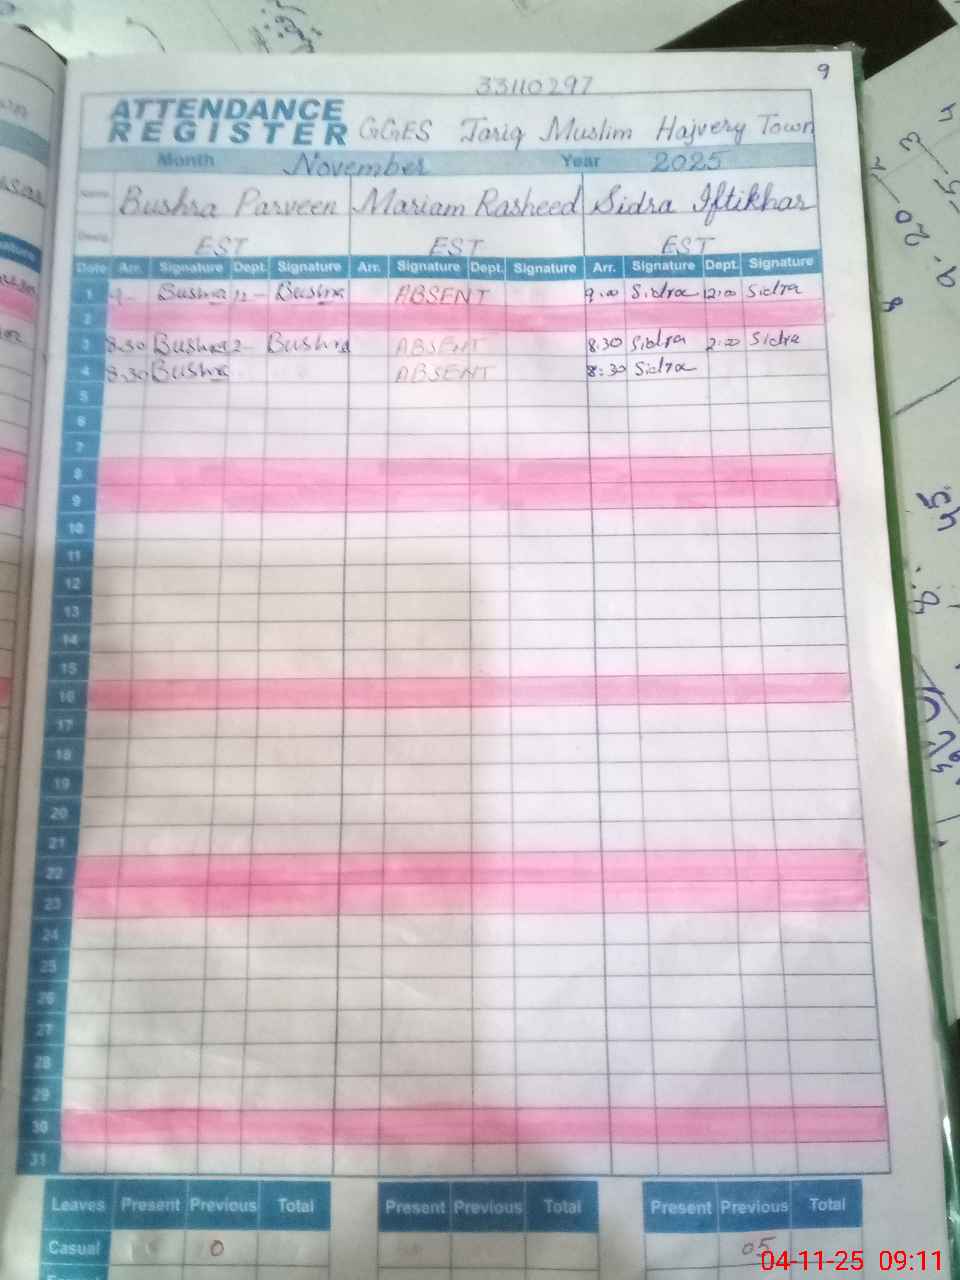 9
33110297
ATTENDANCE REGISTER GGES Tariq Muslim Hajvery Town
Month November Year 2025
Name Bushra Parveen Mariam Rasheed Sidra Iftikhar
EST EST EST
Date Arr. Signature Dept. Signature Arr. Signature Dept. Signature Arr. Signature Dept. Signature
1 9- Bushra 12- Bushra ABSENT 9:00 Sidra 12:00 Sidra
2
3 8.30 Bushra 2- Bushra ABSENT 8:30 Sidra 2:00 Sidra
4 8.30 Bushra ABSENT 8:30 Sidra
5
6
7
8
9
10
11
12
13
14
15
16
17
18
19
20
21
22
23
24
25
26
27
28
29
30
31
Leaves Present Previous Total Present Previous Total Present Previous Total
Casual 0 05
04-11-25 09:11